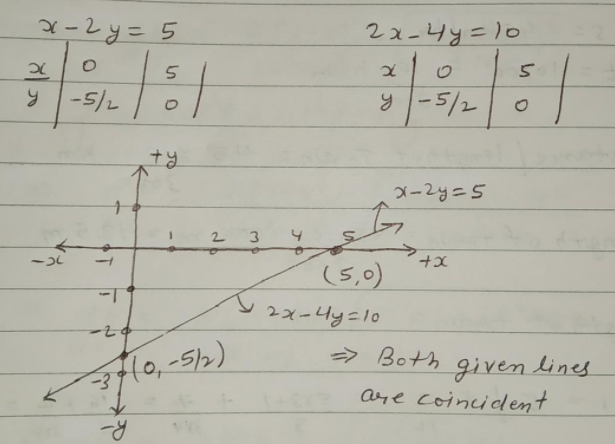 x-2y=5 2x-4y=10
x 0 5 x 0 5
y -5/2 0 y -5/2 0
+y
x-2y=5
1
-x -1 1 2 3 4 5 +x
(5,0)
-1
2x-4y=10
-2
(0,-5/2) ⇒ Both given lines
-3 are coincident
-y